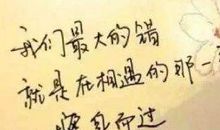 我们最大的错
就是在相遇的那一
而过